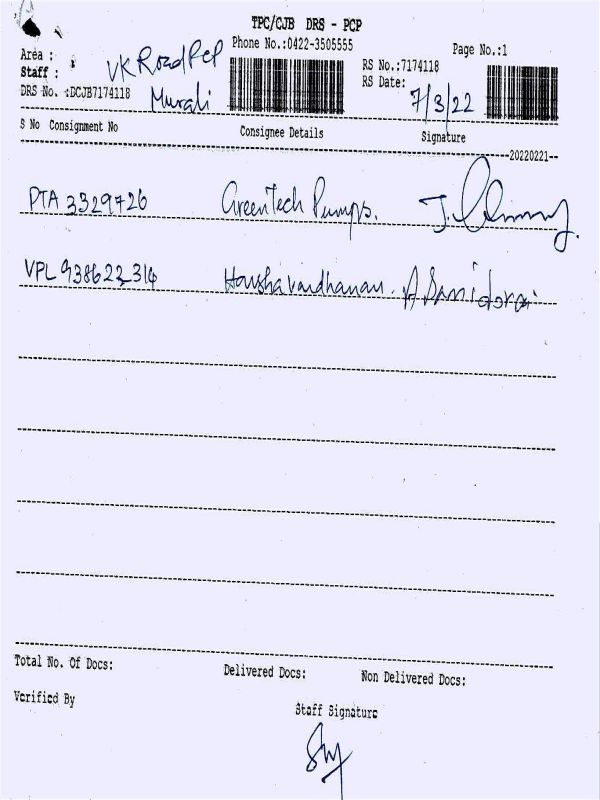 TPC/CJB DRS - PCP
Phone No.:0422-3505555
Page No.:1
Area : VK Road Pcp
Staff : Murali
DRS No. :DCJB7174118
RS No.:7174118
RS Date: 7/3/22
S No Consignment No Consignee Details Signature
20220221
PTA 3329726 GreenTech Pumps.
VPL 938622314 Harshavardhanan.
Total No. Of Docs: Delivered Docs: Non Delivered Docs:
Verified By Staff Signature